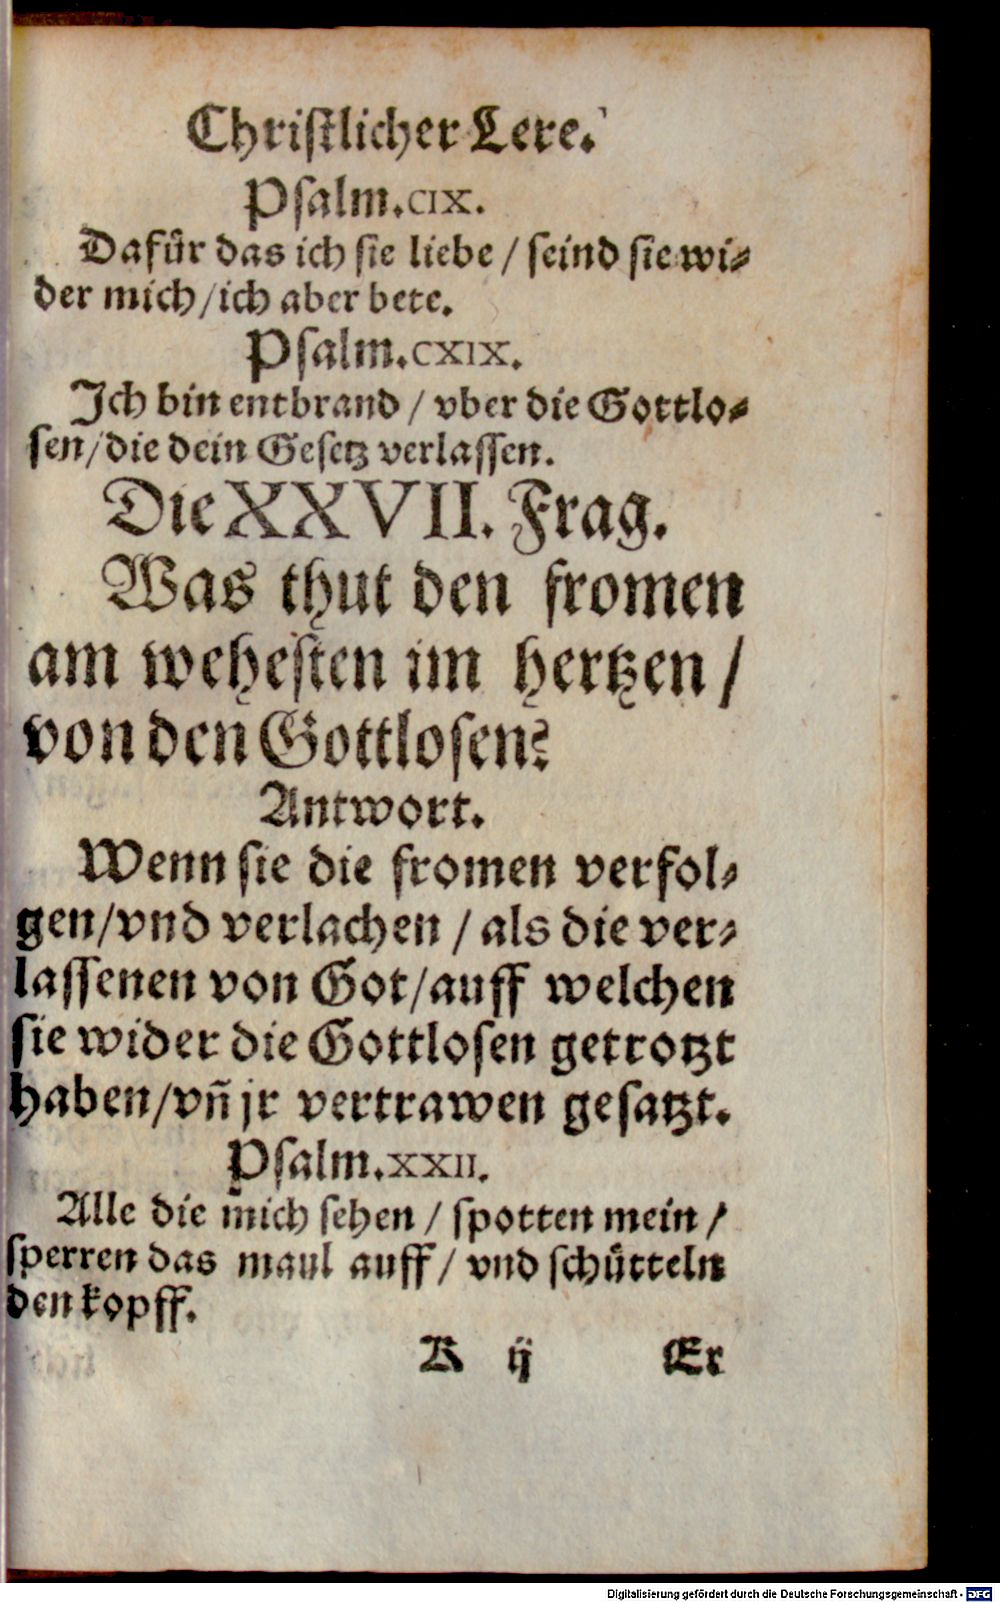 Christlicher Lere.
Psalm.CIX.
Dafür das ich sie liebe / seind sie wi⸗
der mich / ich aber bete.
Psalm.CXIX.
Ich bin entbrand / vber die Gottlo⸗
sen / die dein Gesetz verlassen.
Die XXVII. Frag.
Was thut den fromen
am wehesten im hertzen /
von den Gottlosen?
Antwort.
Wenn sie die fromen verfol⸗
gen / vnd verlachen / als die ver⸗
lassenen von Got / auff welchen
sie wider die Gottlosen getrotzt
haben / vñ jr vertrawen gesatzt.
Psalm.XXII.
Alle die mich sehen / spotten mein /
sperren das maul auff / vnd schütteln
den kopff.
K ij Er
Digitalisierung gefördert durch die Deutsche Forschungsgemeinschaft - DFG